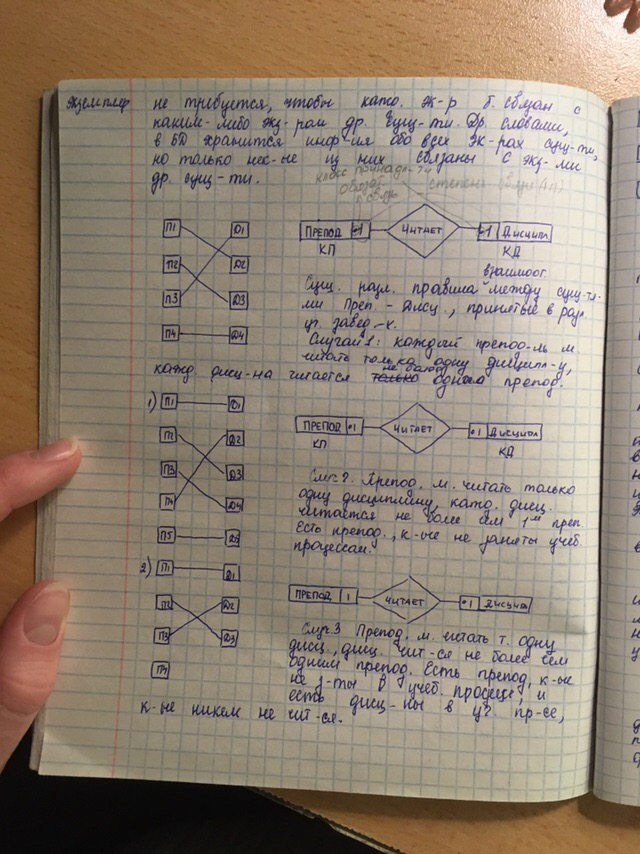 экземпляр не требуется, чтобы кажд. эк-р б. связан с
каким-либо экз-ром др. сущ-ти. Др. словами,
в БД хранится инф-ия обо всех эк-рах сущ-ти,
но только нек-ые из них связаны с экз-ми
др. сущ-ти.
класс принадл-ти
степень связи (1:1)
обязат.
связь
П1 Д1
П2 Д2
П3 Д3
П4 Д4
ПРЕПОД •1 ЧИТАЕТ •1 Дисципл
КП КД
взаимоот.
Сущ. разл. правила между сущ-тя-
ми Преп. - Дисц., принятые в разл.
уч. завед-х.
Случай 1: каждый препод-ль м.
читать только одну дисципл-у,
не более
кажд. дисц-на читается только одного препод.
1) П1 Д1
П2 Д2
П3 Д3
П4 Д4
П5 Д5
ПРЕПОД •1 ЧИТАЕТ •1 Дисципл
КП КД
Случ. 2. Препод. м. читать только
одну дисциплину, кажд. дисц.
читается не более чем 1ым преп
Есть препод., к-ые не заняты учеб.
процессом.
2) П1 Д1
П2 Д2
П3 Д3
П4
ПРЕПОД 1 ЧИТАЕТ •1 Дисципл
Случ. 3 Препод. м. читать т. одну
дисц., дисц. чит-ся не более чем
одним препод. Есть препод, к-ые
не з-ты в учеб. процессе, и
есть дисц-ны в пр-се,
к-ые никем не чит-ся.